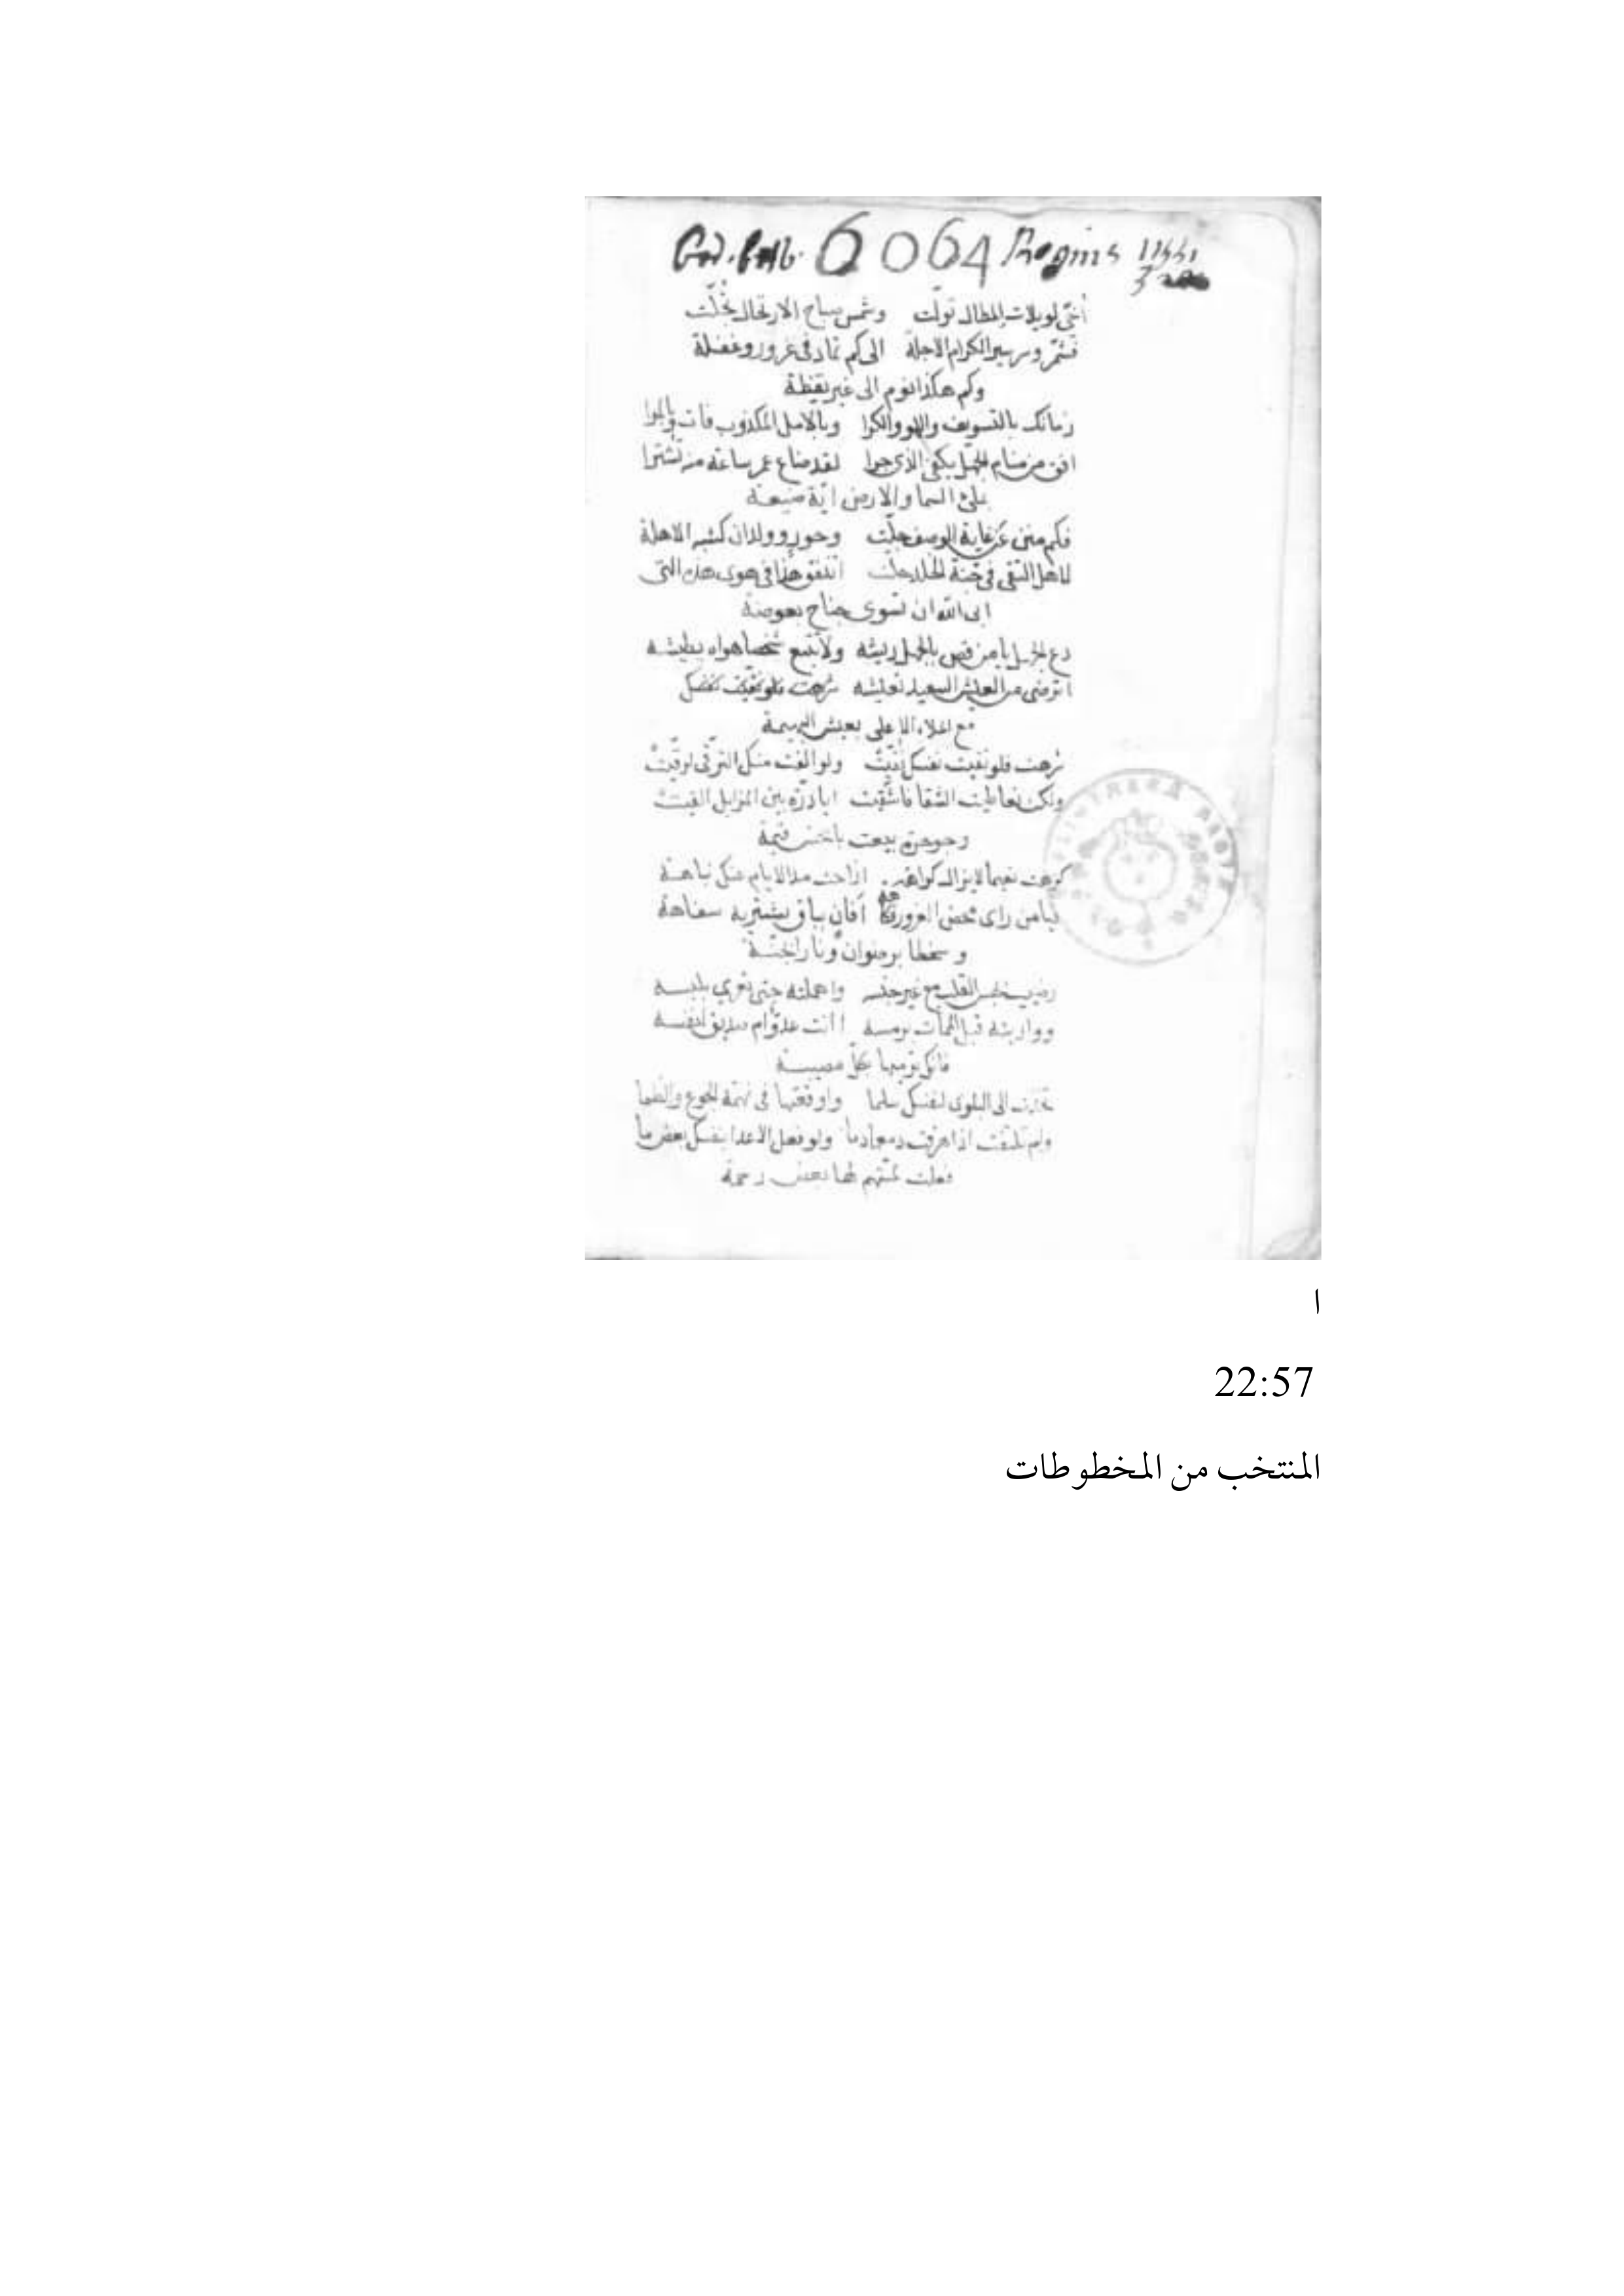 6064 Regius
أخيّ لويلات المطال تولّت وشمس صباح الارتحال تجلّت
فشمّر وسر سير الكرام الاجلة الى كم تماد فى غرور وغفلة
وكم هكذا نوم الى غير يقظة
زمانك بالتسويف واللهو والكرا وبالامل المكذوب فات
افق من منام الجهل يكفى الذى جرا لقد ضاع عمر ساعة منه تشترا
بملئ السما والارض اية ضيعة
فكم منى عن غاية الوصف جلّت وحور وولدان كشبه الاهلة
لاهل التقى فى جنة الخلد حلت اتنفق هذا فى هوى هذه التى
ابى الله ان تسوى جناح بعوضة
دع الجهل يا من قص بالجهل ريشه ولا تتبع شخصا هواه يطيشه
اترضى من العيش السعيد تعيشه
مع الملاء الاعلى بعيش البهيمة
فلو نقيت نفسك ولو الفت منك الترقى لرقّيت
ولكن تعاطيت الشقا فاشقيت ايا درّة بين المزابل القيت
وجوهرة بيعت بابخس قيمة
كرهت نعيما لا يزال
فيا من راى محض الغرور أفانٍ بباق يشتريه سفاهة
وسخطا برضوان ونارا بجنّة
القلب مع غير جنسه واهملته حتى
وواريته قبل الممات برمسه أانت عدوّ ام صديق لنفسه
فانك ترميها بكلّ مصيبة
الى البلوى لنفسك سلما واوقعتها فى الجوع والظما
ولم تلتفت اذ اهرقت دمعها دما ولو فعل الاعدا بنفسك بعض ما
فعلت لمسّتهم لها بعض رحمة
ا
22:57
المنتخب من المخطوطات